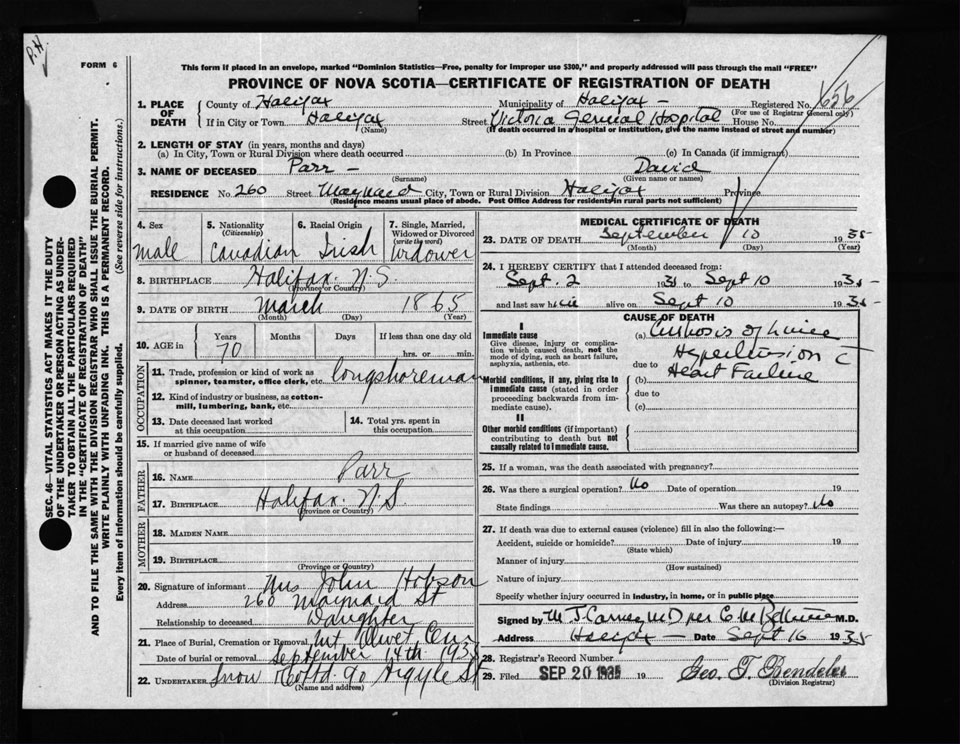 P.H.
FORM 6
This form if placed in an envelope, marked "Dominion Statistics—Free, penalty for improper use $300," and properly addressed will pass through the mail "FREE"
PROVINCE OF NOVA SCOTIA—CERTIFICATE OF REGISTRATION OF DEATH
1. PLACE OF DEATH County of Halifax Municipality of Halifax — Registered No. 626
(For use of Registrar General only)
If in City or Town Halifax Street Victoria General Hospital House No.
(Name) (If death occurred in a hospital or institution, give the name instead of street and number)
2. LENGTH OF STAY (in years, months and days)
(a) In City, Town or Rural Division where death occurred (b) In Province (c) In Canada (if immigrant)
3. NAME OF DECEASED Parr — David
(Surname) (Given name or names)
RESIDENCE No. 260 Street Maynard City, Town or Rural Division Halifax Province
(Residence means usual place of abode. Post Office Address for residents in rural parts not sufficient)
4. Sex 5. Nationality (Citizenship) 6. Racial Origin 7. Single, Married, Widowed or Divorced (write the word)
Male Canadian Irish Widower
8. BIRTHPLACE Halifax. N.S
(Province or Country)
9. DATE OF BIRTH March 1865
(Month) (Day) (Year)
10. AGE in Years Months Days If less than one day old
70 hrs. or min.
OCCUPATION
11. Trade, profession or kind of work as spinner, teamster, office clerk, etc. Longshoreman
12. Kind of industry or business, as cotton-mill, lumbering, bank, etc.
13. Date deceased last worked at this occupation
14. Total yrs. spent in this occupation
15. If married give name of wife or husband of deceased
FATHER
16. NAME Parr
17. BIRTHPLACE Halifax. N.S
(Province or Country)
MOTHER
18. MAIDEN NAME
19. BIRTHPLACE
(Province or Country)
20. Signature of informant Mrs John Hobson
Address 260 Maynard St
Relationship to deceased Daughter
21. Place of Burial, Cremation or Removal Mt Olivet Cem
Date of burial or removal September 14th 1935
22. UNDERTAKER Snow & Co Ltd. 90 Argyle St
(Name and address)
MEDICAL CERTIFICATE OF DEATH
23. DATE OF DEATH September 10 1935
(Month) (Day) (Year)
24. I HEREBY CERTIFY that I attended deceased from:
Sept. 2 1935 to Sept 10 1935
and last saw him alive on Sept 10 1935
CAUSE OF DEATH
I
Immediate cause
Give disease, injury or complication which caused death, not the mode of dying, such as heart failure, asphyxia, asthenia, etc.
(a) Cirrhosis of Liver
due to Hypertension c̄
Heart Failure
Morbid conditions, if any, giving rise to immediate cause (stated in order proceeding backwards from immediate cause).
(b)
due to
(c)
II
Other morbid conditions (if important) contributing to death but not causally related to immediate cause.
25. If a woman, was the death associated with pregnancy?
26. Was there a surgical operation? No Date of operation 19
State findings Was there an autopsy? No
27. If death was due to external causes (violence) fill in also the following:—
Accident, suicide or homicide? Date of injury 19
(State which)
Manner of injury
(How sustained)
Nature of injury
Specify whether injury occurred in industry, in home, or in public place
Signed by M.D.
Address Halifax — Date Sept 16 1935
28. Registrar's Record Number
29. Filed SEP 20 1935 19 Geo. T. Bendelow
(Division Registrar)
SEC. 46—VITAL STATISTICS ACT MAKES IT THE DUTY
OF THE UNDERTAKER OR PERSON ACTING AS UNDER-
TAKER TO OBTAIN ALL THE PARTICULARS REQUIRED
IN THE "CERTIFICATE OF REGISTRATION OF DEATH"
AND TO FILE THE SAME WITH THE DIVISION REGISTRAR WHO SHALL ISSUE THE BURIAL PERMIT.
WRITE PLAINLY WITH UNFADING INK. THIS IS A PERMANENT RECORD.
Every item of information should be carefully supplied. (See reverse side for instructions.)